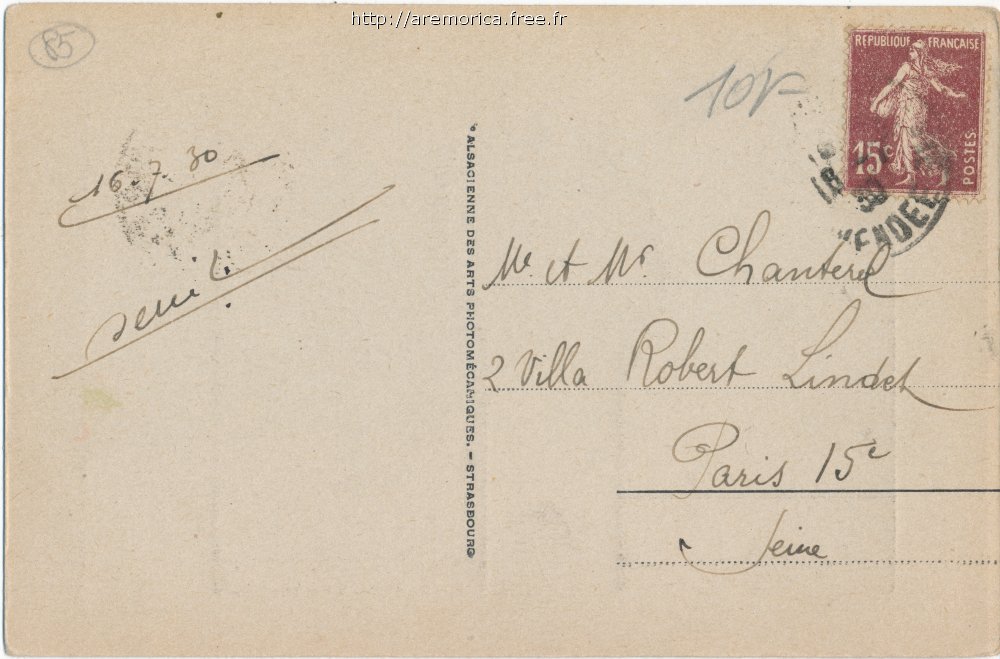 http://aremorica.free.fr
85
10F
RÉPUBLIQUE FRANÇAISE
15c
POSTES
18
30
VENDEE
16.7.30
ALSACIENNE DES ARTS PHOTOMÉCANIQUES. - STRASBOURG
Me et Mr Chanterel
2 Villa Robert Lindet
Paris 15e
Seine